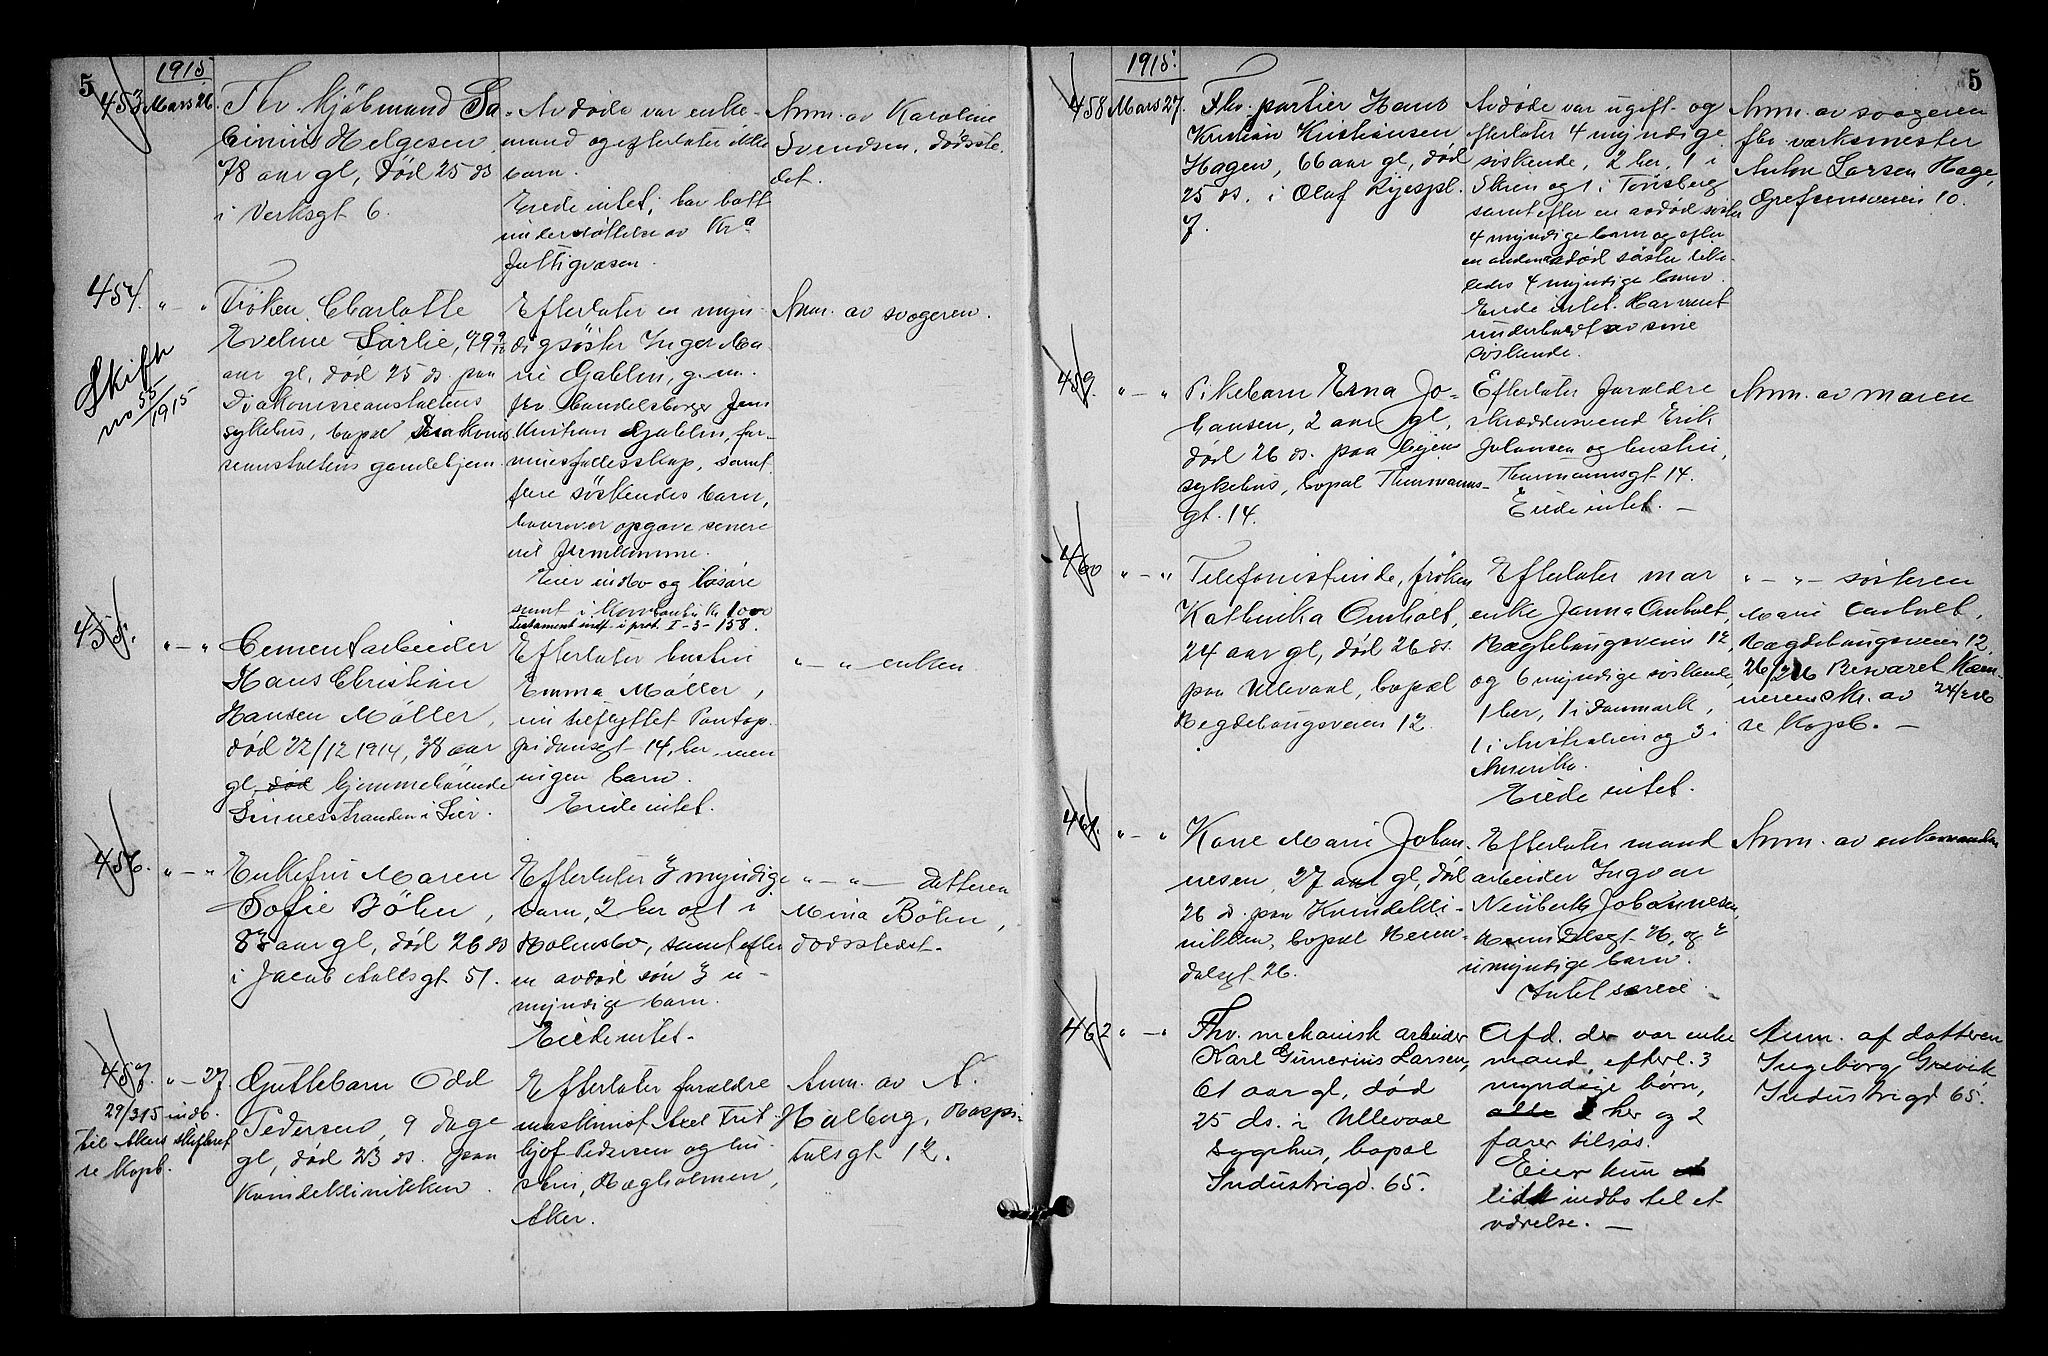 5
1915
453
Mars 26.
Fhv. kjöbmand Sa-
Helgesen
78 aar gl, död 25 ds
i Verksgt 6.
Avdöde var enke-
mand og efterlater ikke
barn.
Eiede intet; har hatt
understöttelse av Kra
fattigvæsen.
Anm. av Karoline
Svendsen, dödsste-
det.
454.
" - "
Skifte
no 55/1915
Fröken Charlotte
Eveline Sörlie, 99 9/12
aar gl, död 25 ds. paa
Diakonisseanstaltens
sykehus, bopæl Diakonis-
seanstaltens gamlehjem.
Efterlater en myn-
dig söster Inger Ma-
rie Gablin, g. m.
fhv. handelsborger Jens
Kristian Gablin, for-
muesfællesskap, samt
flere söskendes barn,
hvorover opgave senere
vil fremkomme.
Eier indbo og lösöre
samt i kontanter Kr. 1000
Testament indf. i prot. I-3-158.
Anm. av svogeren.
455.
" - "
Cementarbeider
Hans Christian
Hansen Möller,
död 22/12 1914, 38 aar
gl, död hjemmehörende
Linnesstranden i Lier.
Efterlater hustru
Emma Möller,
nu tilflyttet Pontop-
pidansgt 14, her, men
ingen barn.
Eiede intet.
" - " enken
456.
" - "
Enkefru Maren
Sofie Böhn,
83 aar gl, död 26 ds
i Jacob Aallsgt 51.
Efterlater 3 myndige
barn, 2 her og 1 i
Holmsbo, samt efter
en avdöd sön 3 u-
myndige barn.
Eiede intet.
" - " datteren
Mina Böhn,
dödsstedet.
457.
" - 27.
29/3 15 indb.
til Akers skifteret
se kopb.
Guttebarn Odd
Pedersen, 9 dage
gl, död 23 ds. paa
Kvindeklinikken.
Efterlater forældre
maskinist Axel Frit-
hjof Pedersen og hu-
stru, Hægholmen,
Aker.
Anm. av A.
Halberg, Hospi-
talsgt 12.
5
1915.
458
Mars 27.
Fhv. portier Hans
Kristian Kristiansen
Hagen, 66 aar gl, död
25 ds. i Olaf Ryespl.
7.
Avdöde var ugift og
efterlater 4 myndige
söskende, 2 her, 1 i
Skien og 1 i Tönsberg
samt efter en avdöd söster
4 myndige barn og efter
en anden avdöd söster like-
ledes 4 myndige barn.
Eiede intet. Har været
underholdt av sine
söskende.
Anm. av svogeren
fhv. værksmester
Anton Larsen Hage,
Grefsensveien 10.
459.
" - "
Pikebarn Erna Jo-
hansen, 2 aar gl,
död 26 ds. paa
sykehus, bopæl Thurmanns-
gt. 14.
Efterlater forældre
skræddersvend Erik
Johansen og hustru,
Thurmannsgt 14.
Eiede intet. -
Anm. av moren
460
" - "
Telefonistinde, fröken
Kathinka Omholt,
24 aar gl, död 26 ds.
paa Ullevaal, bopæl
Hegdehaugsveien 12.
Efterlater mor
enke Janna Omholt,
Hægdehaugsveien 12,
og 6 myndige söskende,
1 her, 1 i Danmark,
1 i Australien og 3 i
Amerika.
Eiede intet.
" - " - sösteren
Marie Omholt,
Hægdehaugsveien 12.
26/2 26 Besvaret Kæm-
nerens skr. av 24/2 26
se Kopb. -
461.
" - "
Kane Marie Johan-
nesen, 27 aar gl, död
26 ds. paa Kvindekli-
nikken, bopæl Heim-
dalsgt 26.
Efterlater mand
arbeider Ingvar
Johannesen,
Heimdalsgt 26, og 2
umyndige barn.
Intet særeie.
Anm. av enkemanden
462
" - "
Fhv. mekanisk arbeider
Karl Gunerius Larsen,
61 aar gl, död
25 ds. i Ullevaal
sygehus, bopæl
Industrigd. 65.
Afd. der var enke
mand, efterl. 3
myndige börn,
alle 1 her og 2
farer tilsjös.
Eier kun
lidt indbo til et
værelse. -
Anm. af datteren
Ingeborg Grævik
Industrigd 65.